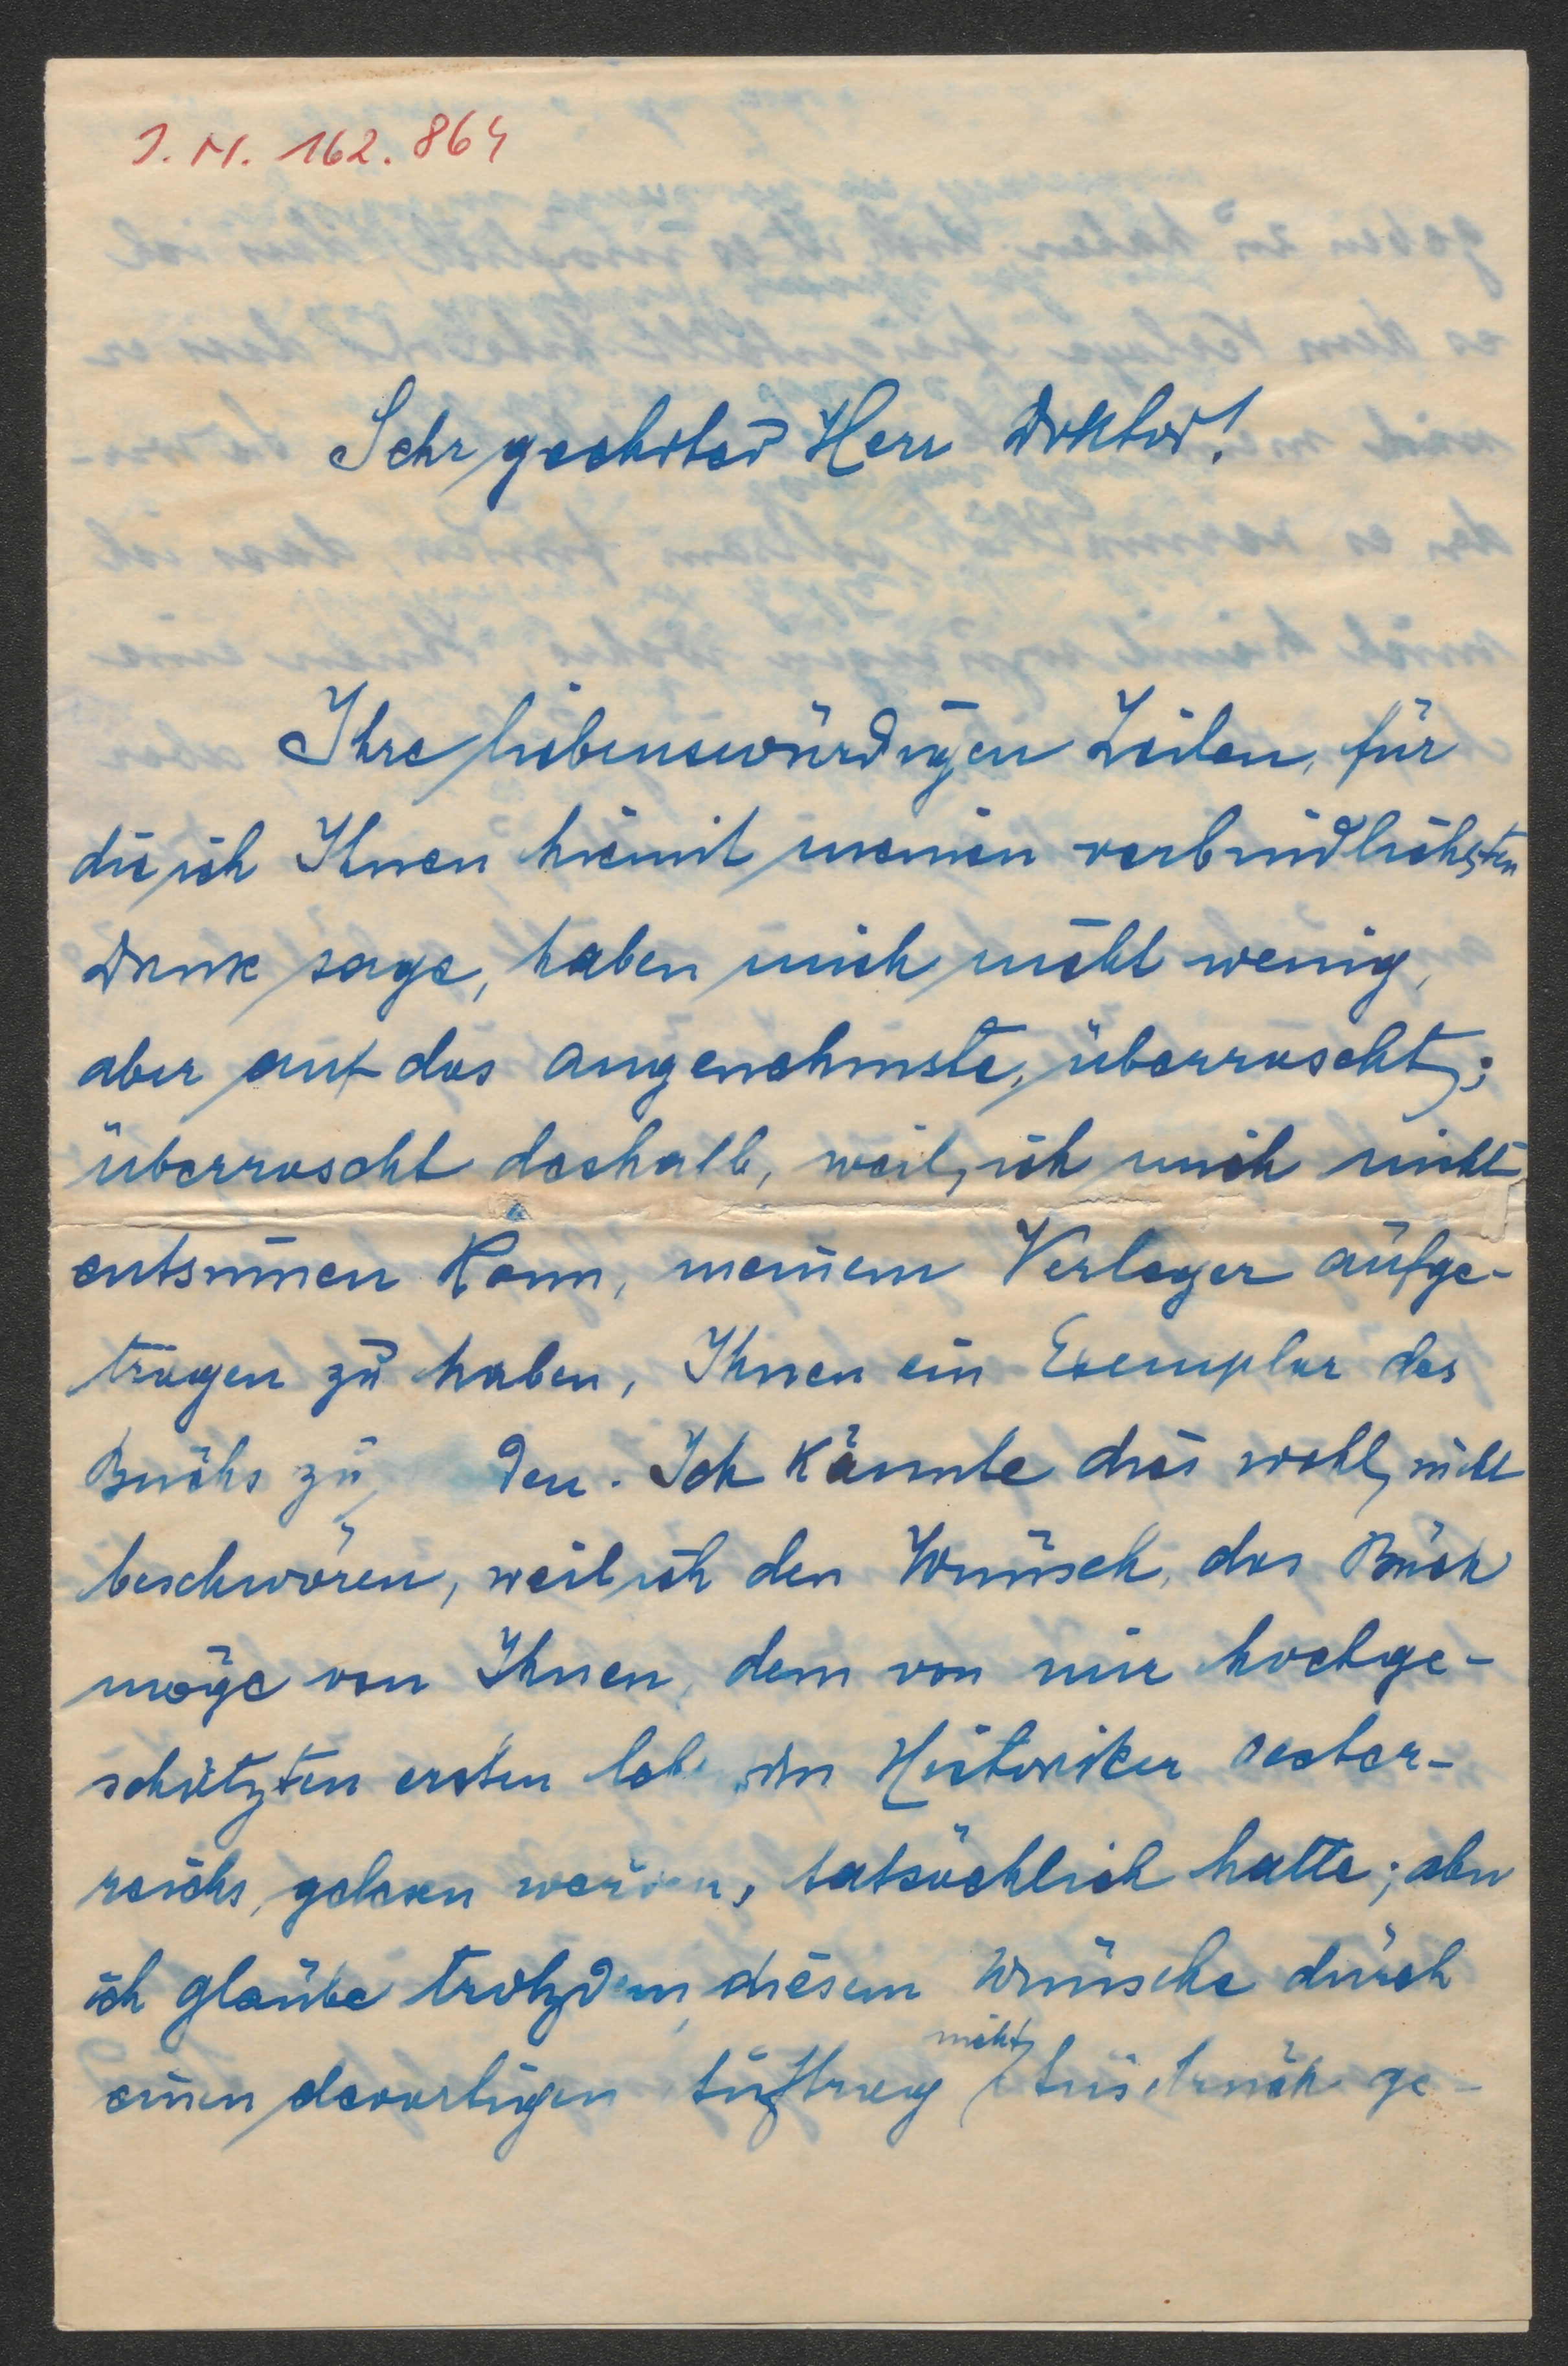 J. N. 162.864
Sehr geehrter Herr Doktor!
Ihre liebenswürdigen Zeilen, für
die ich Ihnen hiemit meinen verbindlichsten
Dank sage, haben mich nicht wenig,
aber auf das angenehmste, überrascht;
überrascht deshalb, weil ich mich nicht
entsinnen kann, meinem Verleger aufge-
tragen zu haben, Ihnen ein Exemplar des
Buchs zu den. Ich könnte dies wohl nicht
beschwören, weil ich den Wunsch, das Buch
möge von Ihnen, dem von mir hochge-
schätzten ersten leb den Historiker Oester-
reichs, gelesen werden, tatsächlich hatte; aber
ich glaube trotzdem, diesem Wunsche durch
einen derartigen Auftrag nicht Ausdruck ge-